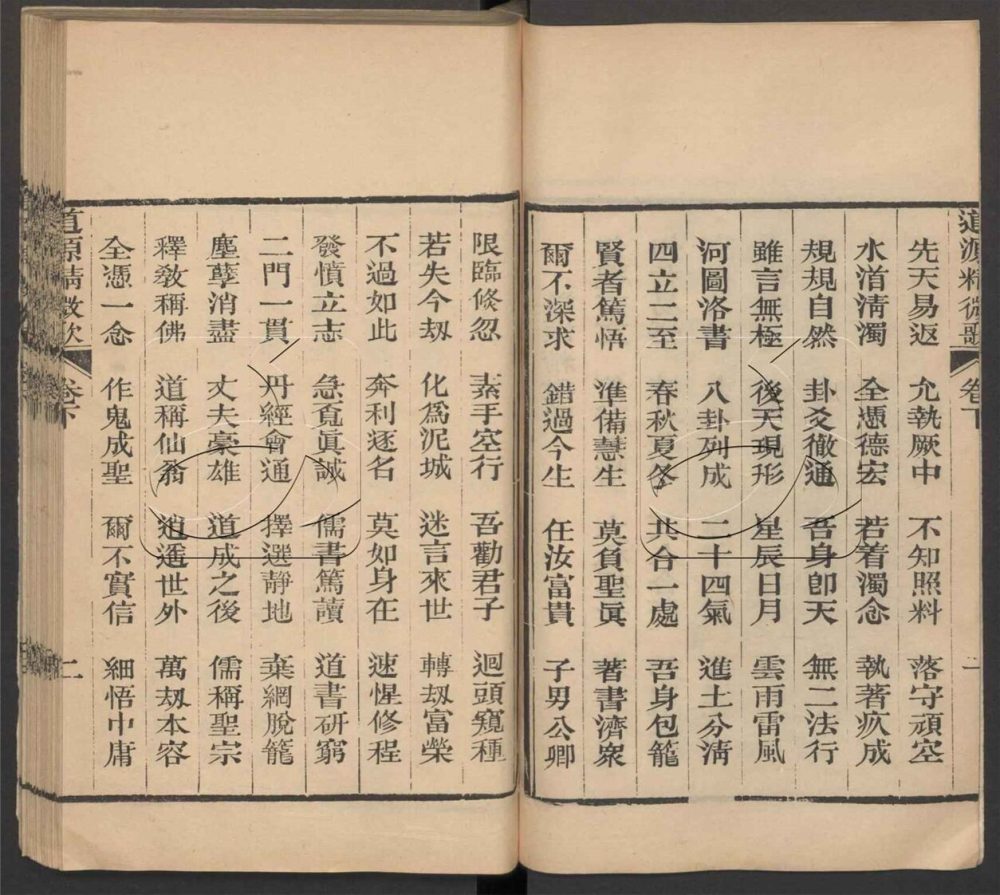 道源精微歌 卷下 一
先天易返 允執厥中 不知照料 落守頑空
水源清濁 全憑德宏 若着濁念 執著疚成
規規自然 卦爻徹通 吾身卽天 無二法行
雖言無極 後天現形 星辰日月 雲雨雷風
河圖洛書 八卦列成 二十四氣 進土分淸
四立二至 春秋夏冬 共合一處 吾身包籠
賢者篤悟 準備慧生 莫負聖眞 著書濟衆
爾不深求 錯過今生 任汝富貴 子男公卿
限臨倏忽 素手空行 吾勸君子 迴頭窺種
若失今刼 化爲泥城 迷言來世 轉刼富榮
不過如此 奔利逐名 莫如身在 速惺修程
發憤立志 急覔眞誠 儒書篤讀 道書研窮
二門一貫 丹經會通 擇選靜地 棄網脫籠
塵孽消盡 丈夫豪雄 道成之後 儒稱聖宗
釋敎稱佛 道稱仙翁 逍遙世外 萬刼本容
全憑一念 作鬼成聖 爾不實信 細悟中庸
道源精微歌 卷下 二